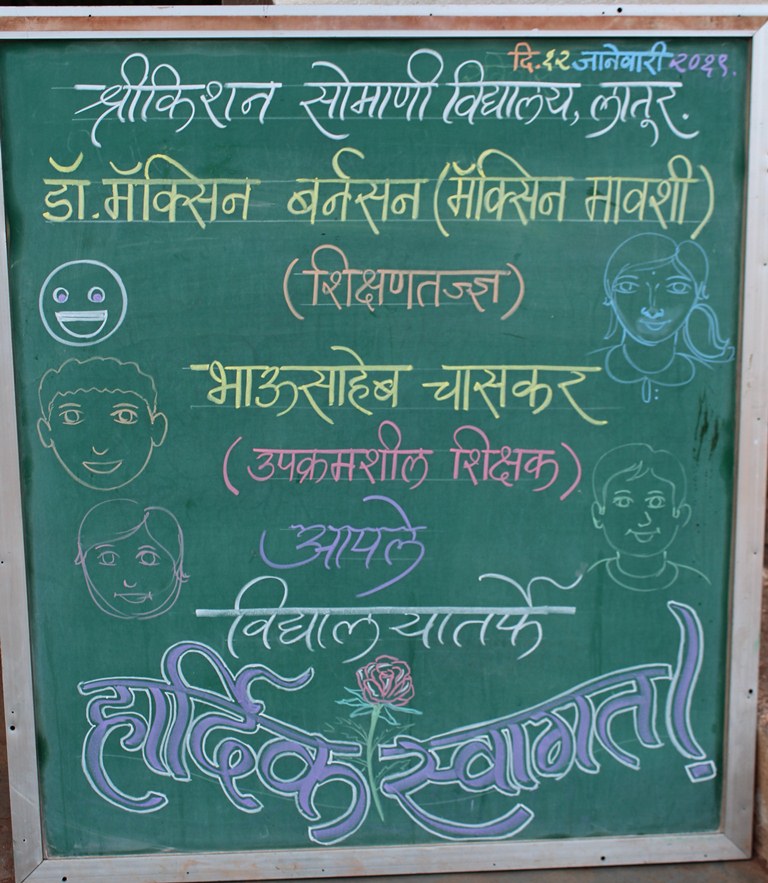 दि. १२ जानेवारी २०१९.
श्रीकिशन सोमाणी विद्यालय, लातूर.
डॉ. मॅक्सिन बर्नसन (मॅक्सिन मावशी)
(शिक्षणतज्ज्ञ)
भाऊसाहेब चासकर
(उपक्रमशील शिक्षक)
आपले
विद्यालयातर्फे
हार्दिक स्वागत!